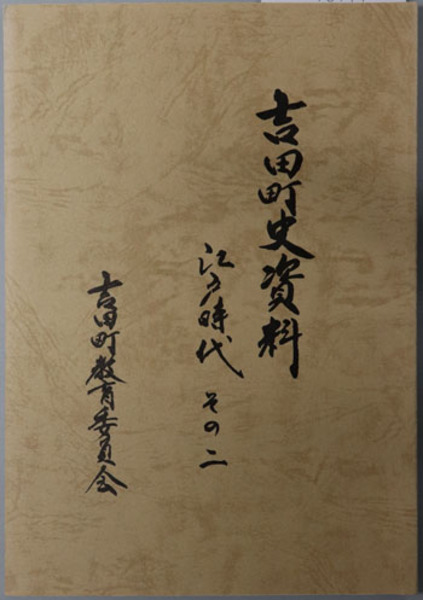 吉田町史資料
江戸時代 その二
吉田町教育委員会